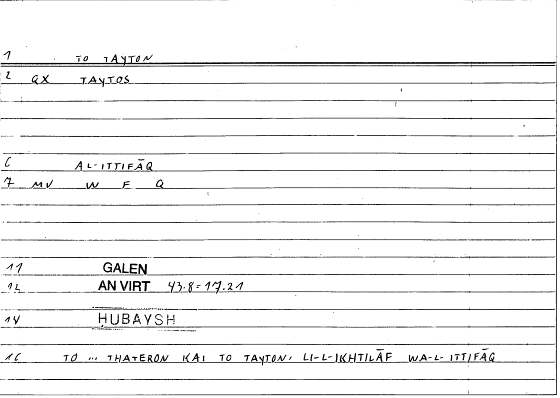 1 TO TAYTON
2 GX TAYTOS
6 AL-ITTIFĀQ
7 MV W F Q
11 GALEN
12 AN VIRT 43.8=17.21
14 HUBAYSH
16 TO ... THATERON KAI TO TAYTON, LI-L-IKHTILĀF WA-L-ITTIFĀQ